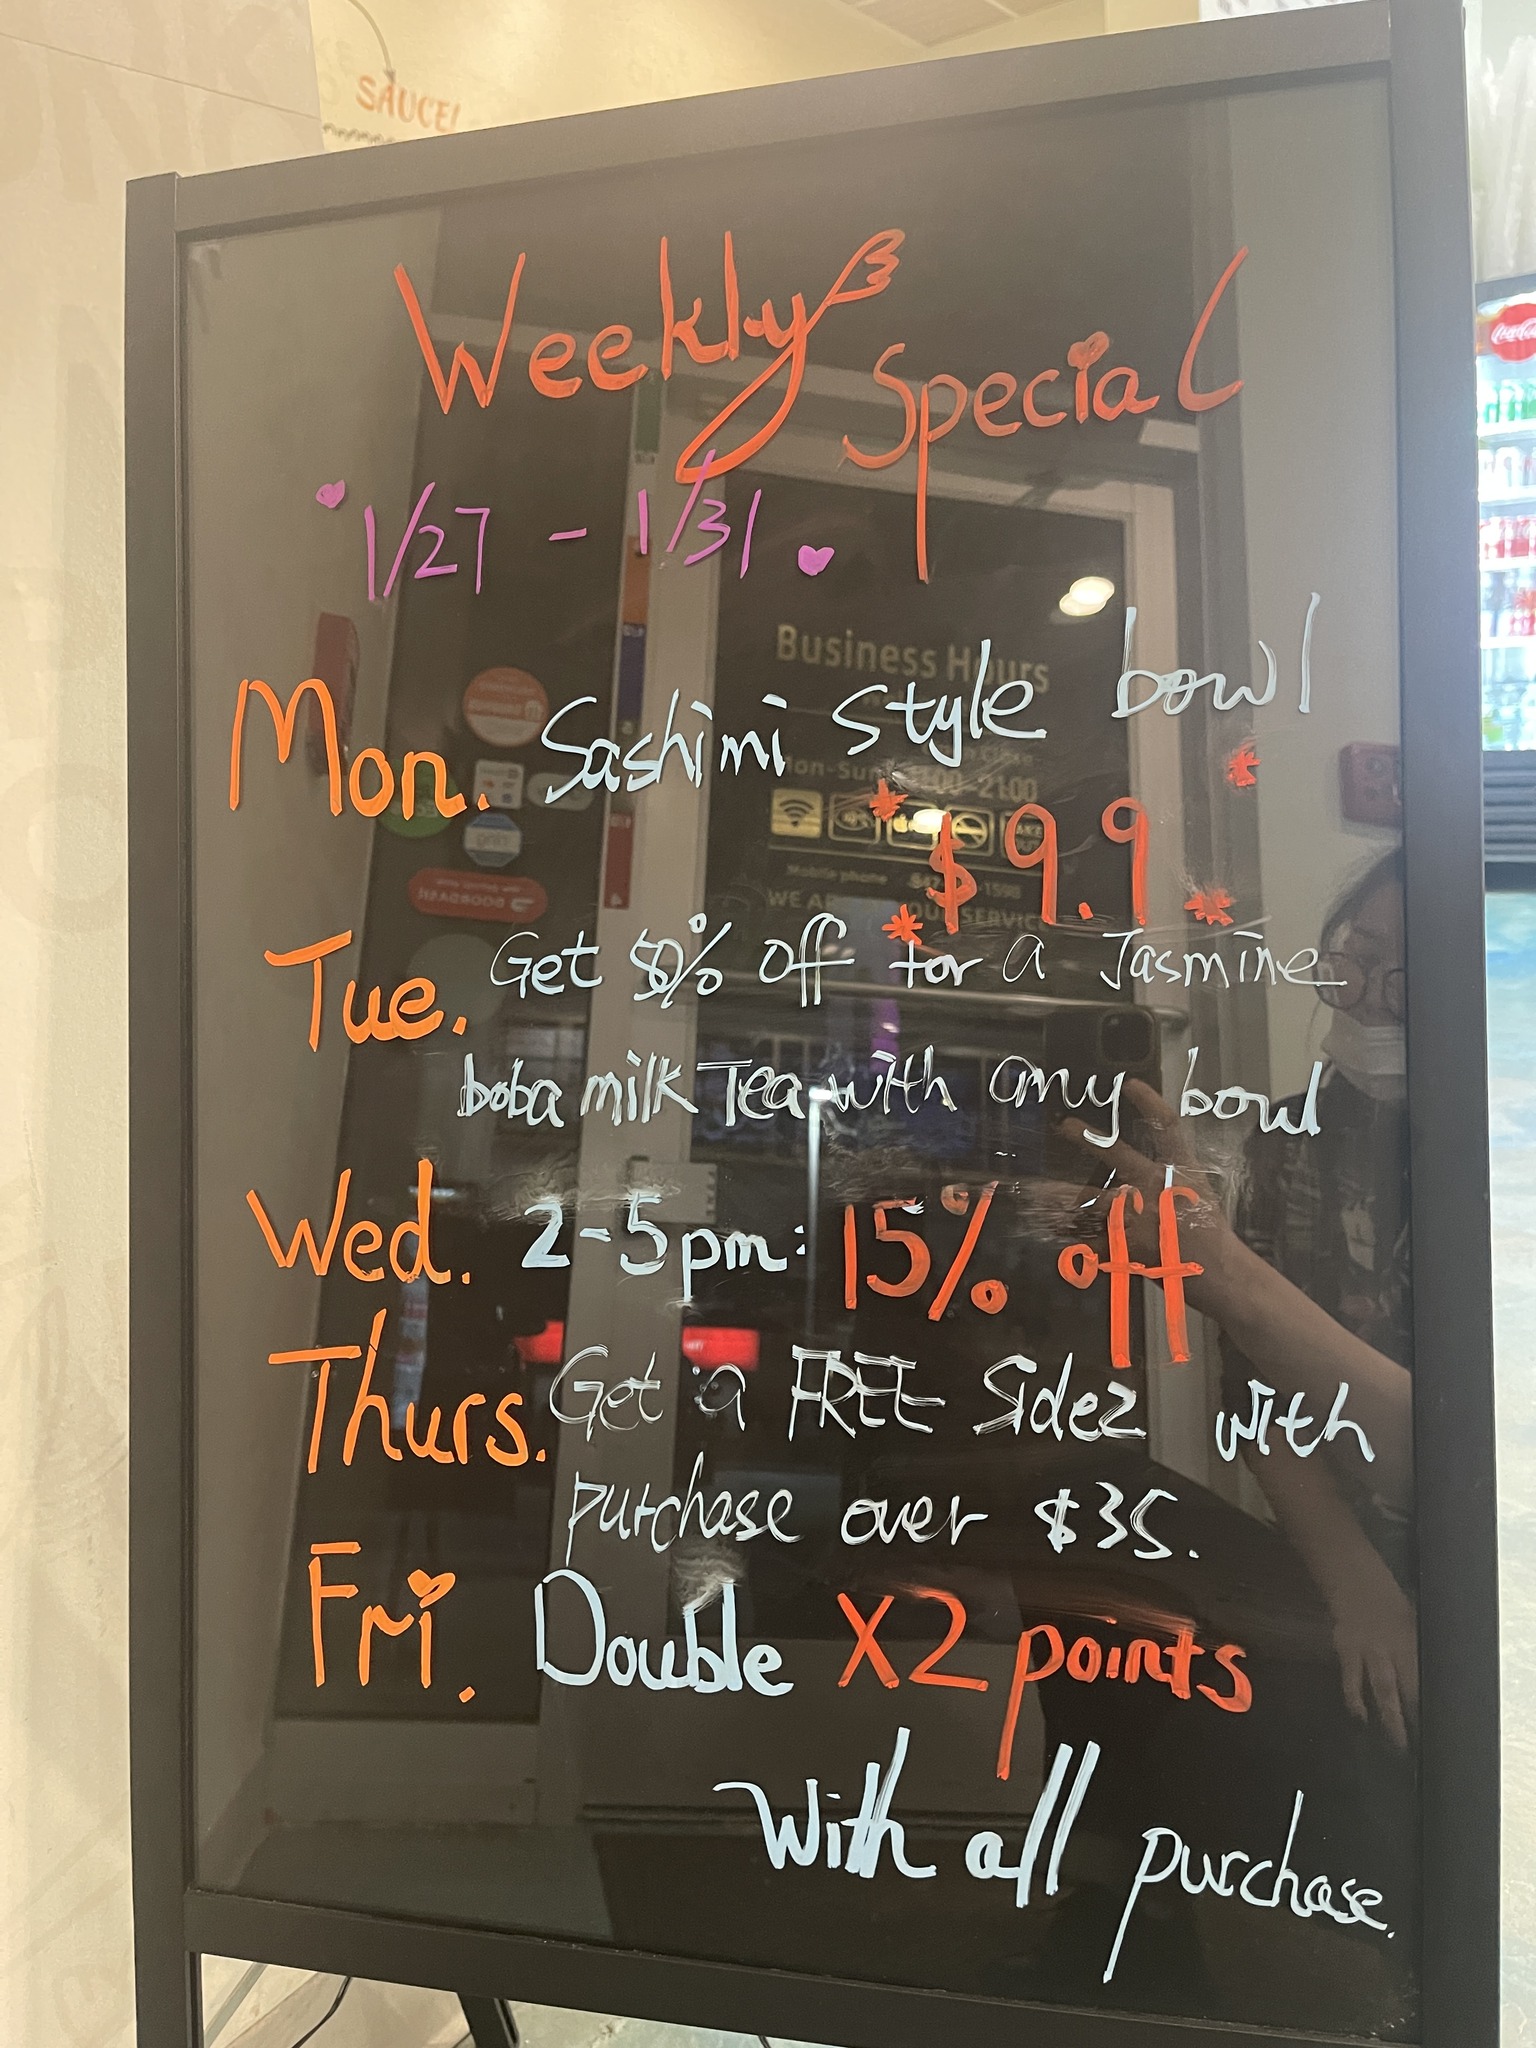 SAUCE!
Weekly Special
1/27 - 1/31
Mon. Sashimi style bowl
$9.9
Tue. Get 50% off for a Jasmine
boba milk Tea with any bowl
Wed. 2-5pm: 15% off
Thurs. Get a FREE Sidez with
purchase over $35.
Fri. Double X2 points
With all purchase.
Business Hours
Mobile phone
Coca-Cola